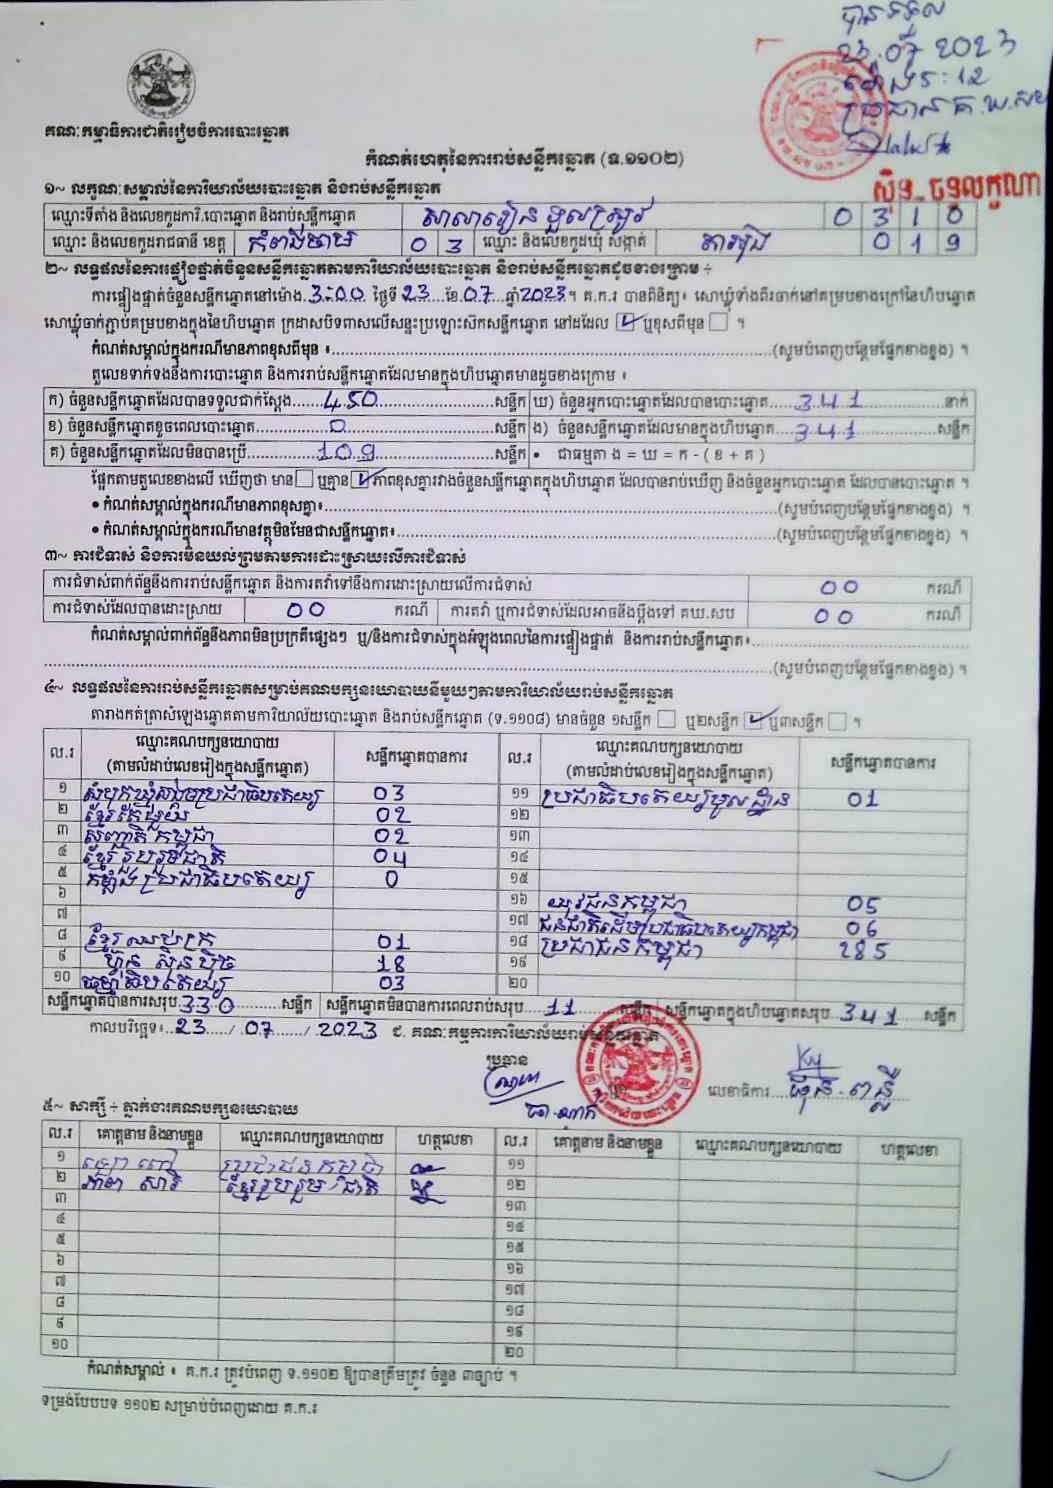 បានទទួល
23.07 2023
ម៉ោង 5:12
គណៈកម្មាធិការជាតិរៀបចំការបោះឆ្នោត
កំណត់ហេតុនៃការរាប់សន្លឹកឆ្នោត (ទ.១១០២)
ស៊ិន ចន្ទលក្ខណា
១~ លក្ខណៈសម្គាល់នៃការិយាល័យបោះឆ្នោត និងរាប់សន្លឹកឆ្នោត
ឈ្មោះទីតាំង និងលេខកូដការិ.បោះឆ្នោត និងរាប់សន្លឹកឆ្នោត សាលារៀន ទួលស្រូវ 0 3 1 0
ឈ្មោះ និងលេខកូដរាជធានី ខេត្ត កំពង់ចាម 0 3 ឈ្មោះ និងលេខកូដឃុំ សង្កាត់ 0 1 9
២~ លទ្ធផលនៃការផ្ទៀងផ្ទាត់ចំនួនសន្លឹកឆ្នោតតាមការិយាល័យបោះឆ្នោត និងរាប់សន្លឹកឆ្នោតដូចខាងក្រោម ៖
ការផ្ទៀងផ្ទាត់ចំនួនសន្លឹកឆ្នោតនៅម៉ោង 3:00 ថ្ងៃទី 23 ខែ 07 ឆ្នាំ 2023 ។ គ.ក.រ បានពិនិត្យ៖ សោឃ្លុំទាំងពីរចាក់នៅគម្របខាងក្រៅនៃហិបឆ្នោត
សោឃ្លុំចាក់ភ្ជាប់គម្របខាងក្នុងនៃហិបឆ្នោត ក្រដាសបិទពាសលើសន្ទះប្រឡោះស៊កសន្លឹកឆ្នោត នៅដដែល ☑ ឬខុសពីមុន ☐ ។
កំណត់សម្គាល់ក្នុងករណីមានភាពខុសពីមុន ៖ (សូមបំពេញបន្ថែមផ្នែកខាងខ្នង) ។
តួលេខទាក់ទងនឹងការបោះឆ្នោត និងការរាប់សន្លឹកឆ្នោតដែលមានក្នុងហិបឆ្នោតមានដូចខាងក្រោម ៖
ក) ចំនួនសន្លឹកឆ្នោតដែលបានទទួលជាក់ស្តែង 450 សន្លឹក ឃ) ចំនួនអ្នកបោះឆ្នោតដែលបានបោះឆ្នោត 341 នាក់
ខ) ចំនួនសន្លឹកឆ្នោតខូចពេលបោះឆ្នោត 0 សន្លឹក ង) ចំនួនសន្លឹកឆ្នោតដែលមានក្នុងហិបឆ្នោត 341 សន្លឹក
គ) ចំនួនសន្លឹកឆ្នោតដែលមិនបានប្រើ 109 សន្លឹក • ជាធម្មតា ង = ឃ = ក - ( ខ + គ )
ផ្អែកតាមតួលេខខាងលើ ឃើញថា មាន ☐ ឬគ្មាន ☑ ភាពខុសគ្នារវាងចំនួនសន្លឹកឆ្នោតក្នុងហិបឆ្នោត ដែលបានរាប់ឃើញ និងចំនួនអ្នកបោះឆ្នោត ដែលបានបោះឆ្នោត ។
• កំណត់សម្គាល់ក្នុងករណីមានភាពខុសគ្នា៖ (សូមបំពេញបន្ថែមផ្នែកខាងខ្នង) ។
• កំណត់សម្គាល់ក្នុងករណីមានវត្ថុមិនមែនជាសន្លឹកឆ្នោត៖ (សូមបំពេញបន្ថែមផ្នែកខាងខ្នង) ។
៣~ ការជំទាស់ និងការមិនយល់ព្រមតាមការដោះស្រាយលើការជំទាស់
ការជំទាស់ពាក់ព័ន្ធនឹងការរាប់សន្លឹកឆ្នោត និងការតវ៉ាទៅនឹងការដោះស្រាយលើការជំទាស់ 00 ករណី
ការជំទាស់ដែលបានដោះស្រាយ 00 ករណី ការតវ៉ា ឬការជំទាស់ដែលអាចនឹងប្តឹងទៅ គឃ.សប 00 ករណី
កំណត់សម្គាល់ពាក់ព័ន្ធនឹងភាពមិនប្រក្រតីផ្សេងៗ ឬ/និងការជំទាស់ក្នុងអំឡុងពេលនៃការផ្ទៀងផ្ទាត់ និងការរាប់សន្លឹកឆ្នោត៖
(សូមបំពេញបន្ថែមផ្នែកខាងខ្នង) ។
៤~ លទ្ធផលនៃការរាប់សន្លឹកឆ្នោតសម្រាប់គណបក្សនយោបាយនីមួយៗតាមការិយាល័យរាប់សន្លឹកឆ្នោត
តារាងកត់ត្រាសំឡេងឆ្នោតតាមការិយាល័យបោះឆ្នោត និងរាប់សន្លឹកឆ្នោត (ទ.១១០៨) មានចំនួន ១សន្លឹក ☐ ឬ២សន្លឹក ☑ ឬ៣សន្លឹក ☐ ។
ល.រ ឈ្មោះគណបក្សនយោបាយ (តាមលំដាប់លេខរៀងក្នុងសន្លឹកឆ្នោត) សន្លឹកឆ្នោតបានការ ល.រ ឈ្មោះគណបក្សនយោបាយ (តាមលំដាប់លេខរៀងក្នុងសន្លឹកឆ្នោត) សន្លឹកឆ្នោតបានការ
១ សំបុកឃ្មុំសង្គមប្រជាធិបតេយ្យ 03 ១១ ប្រជាធិបតេយ្យមូលដ្ឋាន 01
២ ខ្មែរតែមួយ 02 ១២
៣ សញ្ជាតិកម្ពុជា 02 ១៣
៤ ខ្មែររួបរួមជាតិ 04 ១៤
៥ កម្លាំងប្រជាធិបតេយ្យ 0 ១៥
៦ ១៦ យុវជនកម្ពុជា 05
៧ ១៧ ជនជាតិដើមប្រជាធិបតេយ្យកម្ពុជា 06
៨ ខ្មែរឈប់ក្រ 01 ១៨ ប្រជាជនកម្ពុជា 285
៩ ហ៊្វុនស៊ិនប៉ិច 18 ១៩
១០ ធម្មាធិបតេយ្យ 03 ២០
សន្លឹកឆ្នោតបានការសរុប 330 សន្លឹក សន្លឹកឆ្នោតមិនបានការពេលរាប់សរុប 11 សន្លឹក សន្លឹកឆ្នោតក្នុងហិបឆ្នោតសរុប 341 សន្លឹក
កាលបរិច្ឆេទ៖ 23 / 07 / 2023 ជ. គណៈកម្មការការិយាល័យរាប់សន្លឹកឆ្នោត
ប្រធាន
លេខាធិការ
៥~ សាក្សី ៖ ភ្នាក់ងារគណបក្សនយោបាយ
ល.រ គោត្តនាម និងនាមខ្លួន ឈ្មោះគណបក្សនយោបាយ ហត្ថលេខា ល.រ គោត្តនាម និងនាមខ្លួន ឈ្មោះគណបក្សនយោបាយ ហត្ថលេខា
១ ប្រជាជនកម្ពុជា ១១
២ ខ្មែររួបរួមជាតិ ១២
៣ ១៣
៤ ១៤
៥ ១៥
៦ ១៦
៧ ១៧
៨ ១៨
៩ ១៩
១០ ២០
កំណត់សម្គាល់ ៖ គ.ក.រ ត្រូវបំពេញ ទ.១១០២ ឱ្យបានត្រឹមត្រូវ ចំនួន ៣ច្បាប់ ។
ទម្រង់បែបបទ ១១០២ សម្រាប់បំពេញដោយ គ.ក.រ